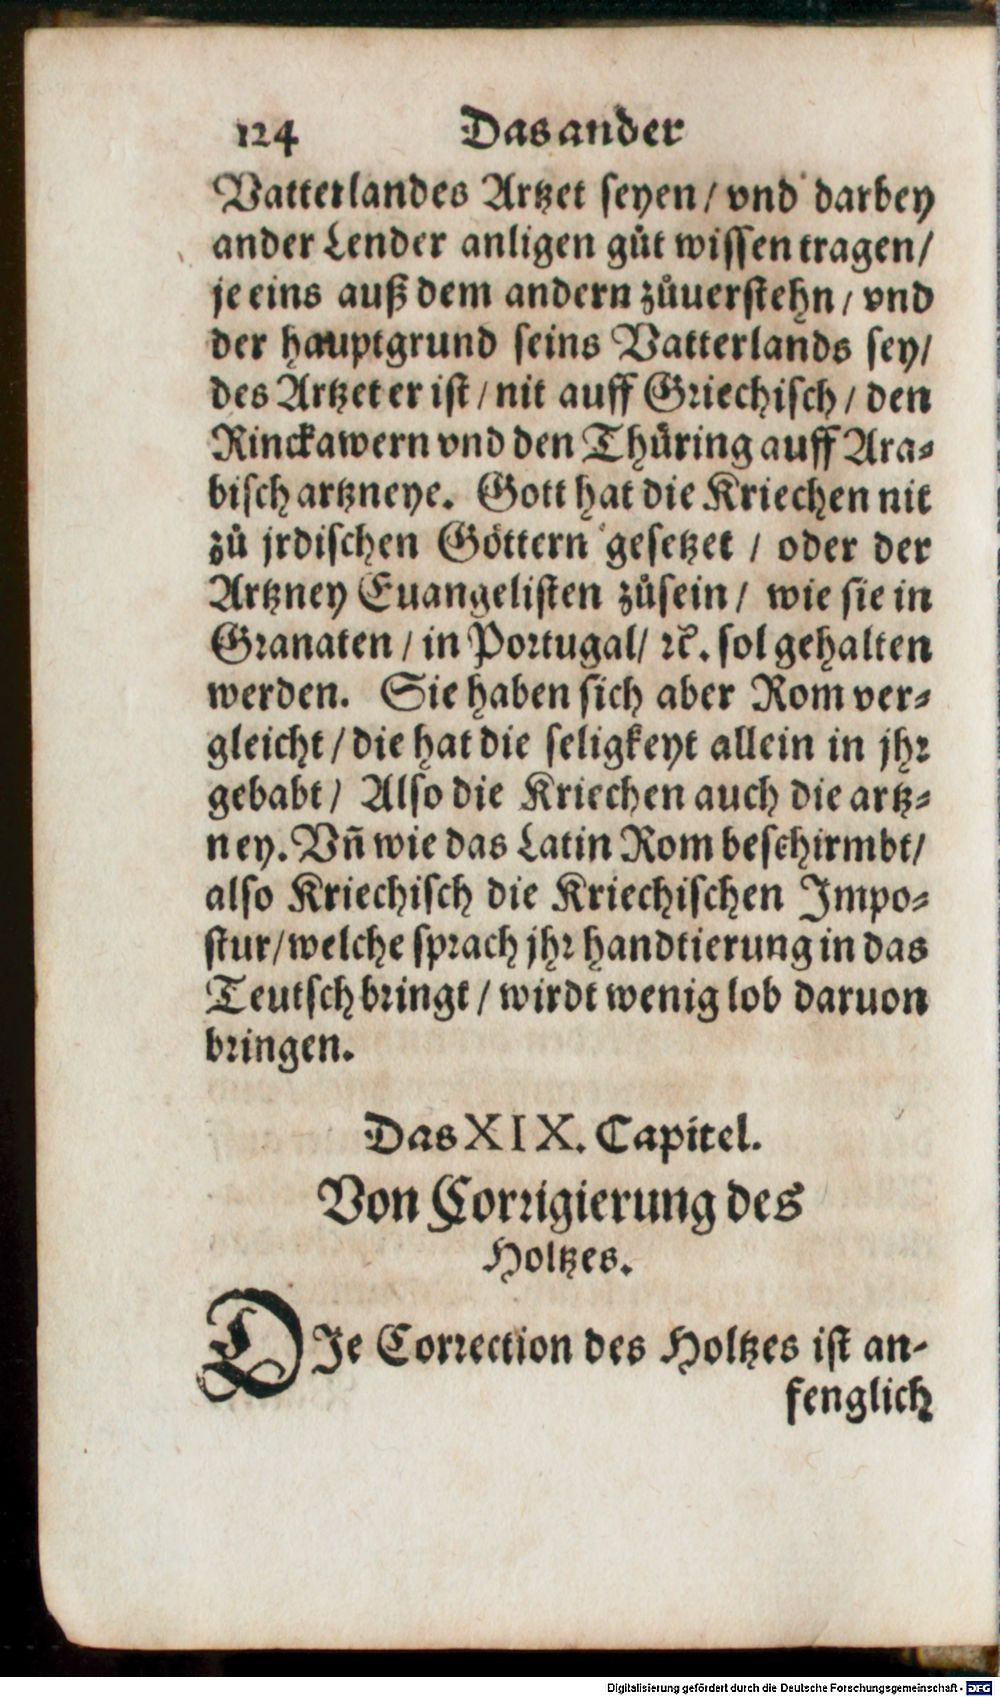 124 Das ander
Vatterlandes Artzet seyen / vnd darbey
ander Lender anligen gůt wissen tragen /
je eins auß dem andern zůuerstehn / vnd
der hauptgrund seins Vatterlands sey /
des Artzet er ist / nit auff Griechisch / den
Rinckawern vnd den Thüring auff Ara-
bisch artzneye. Gott hat die Kriechen nit
zů jrdischen Göttern gesetzet / oder der
Artzney Euangelisten zůsein / wie sie in
Granaten / in Portugal / ꝛc. sol gehalten
werden. Sie haben sich aber Rom ver-
gleicht / die hat die seligkeyt allein in jhr
gebabt / Also die Kriechen auch die artz-
ney. Vñ wie das Latin Rom beschirmbt /
also Kriechisch die Kriechischen Impo-
stur / welche sprach jhr handtierung in das
Teutsch bringt / wirdt wenig lob daruon
bringen.
Das XIX. Capitel.
Von Corrigierung des
Holtzes.
DIe Correction des Holtzes ist an-
fenglich
Digitalisierung gefördert durch die Deutsche Forschungsgemeinschaft - DFG